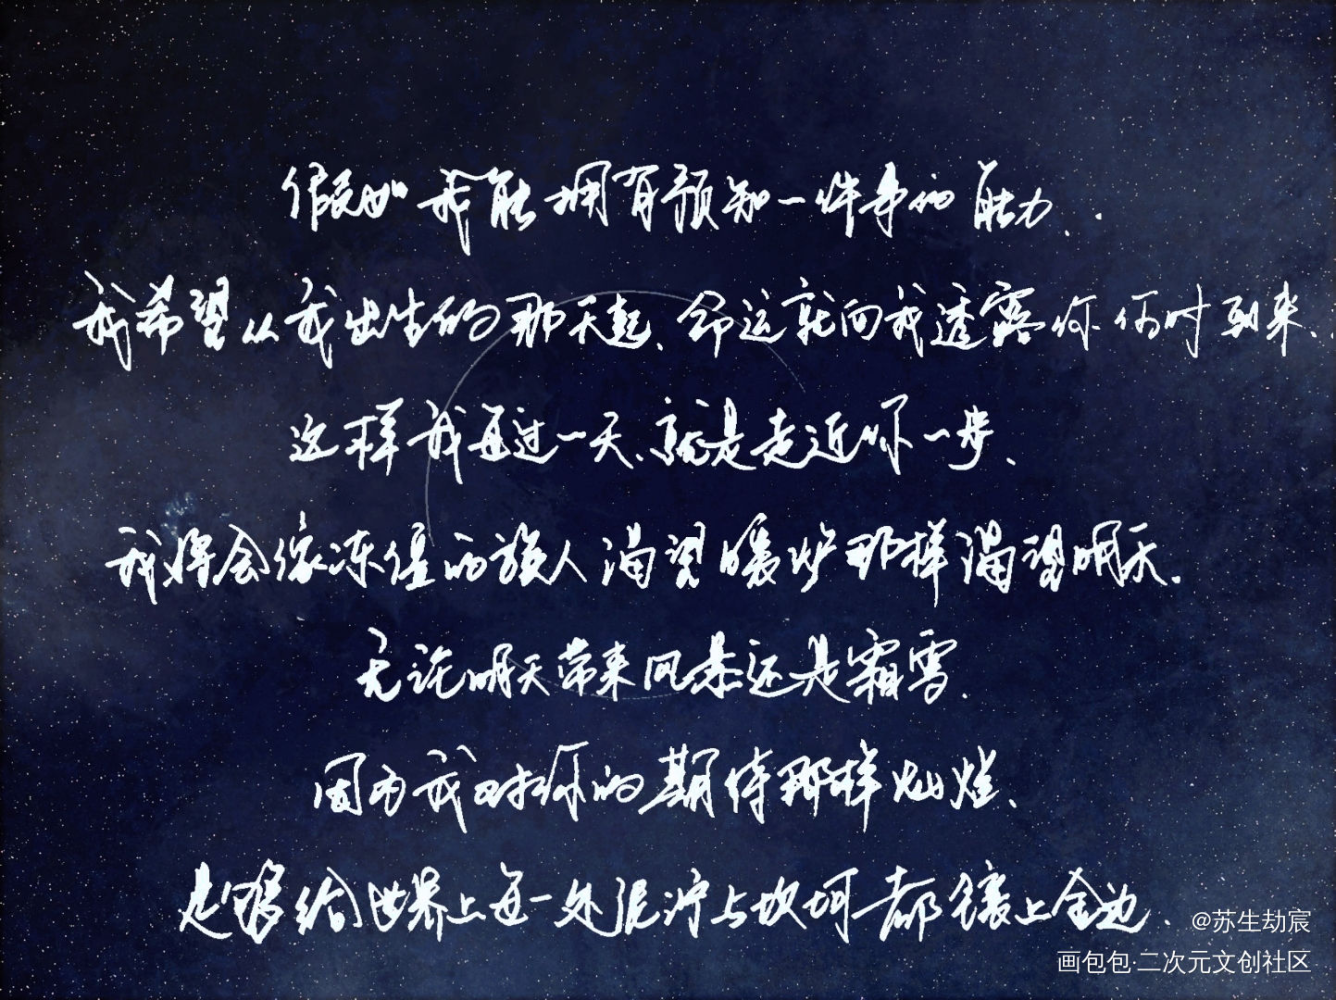 假如我能拥有预知一件事的能力.
我希望从我出生的那天起、命运就向我透露你何时到来、
这样我每过一天、就是走近你一步、
我将会像冻僵的旅人渴望暖炉那样渴望明天.
无论明天带来风暴还是霜雪.
因为我对你的期待那样灿烂、
足够给世界上每一处泥泞与坎坷都镶上金边.
@苏生劫宸
画包包·二次元文创社区